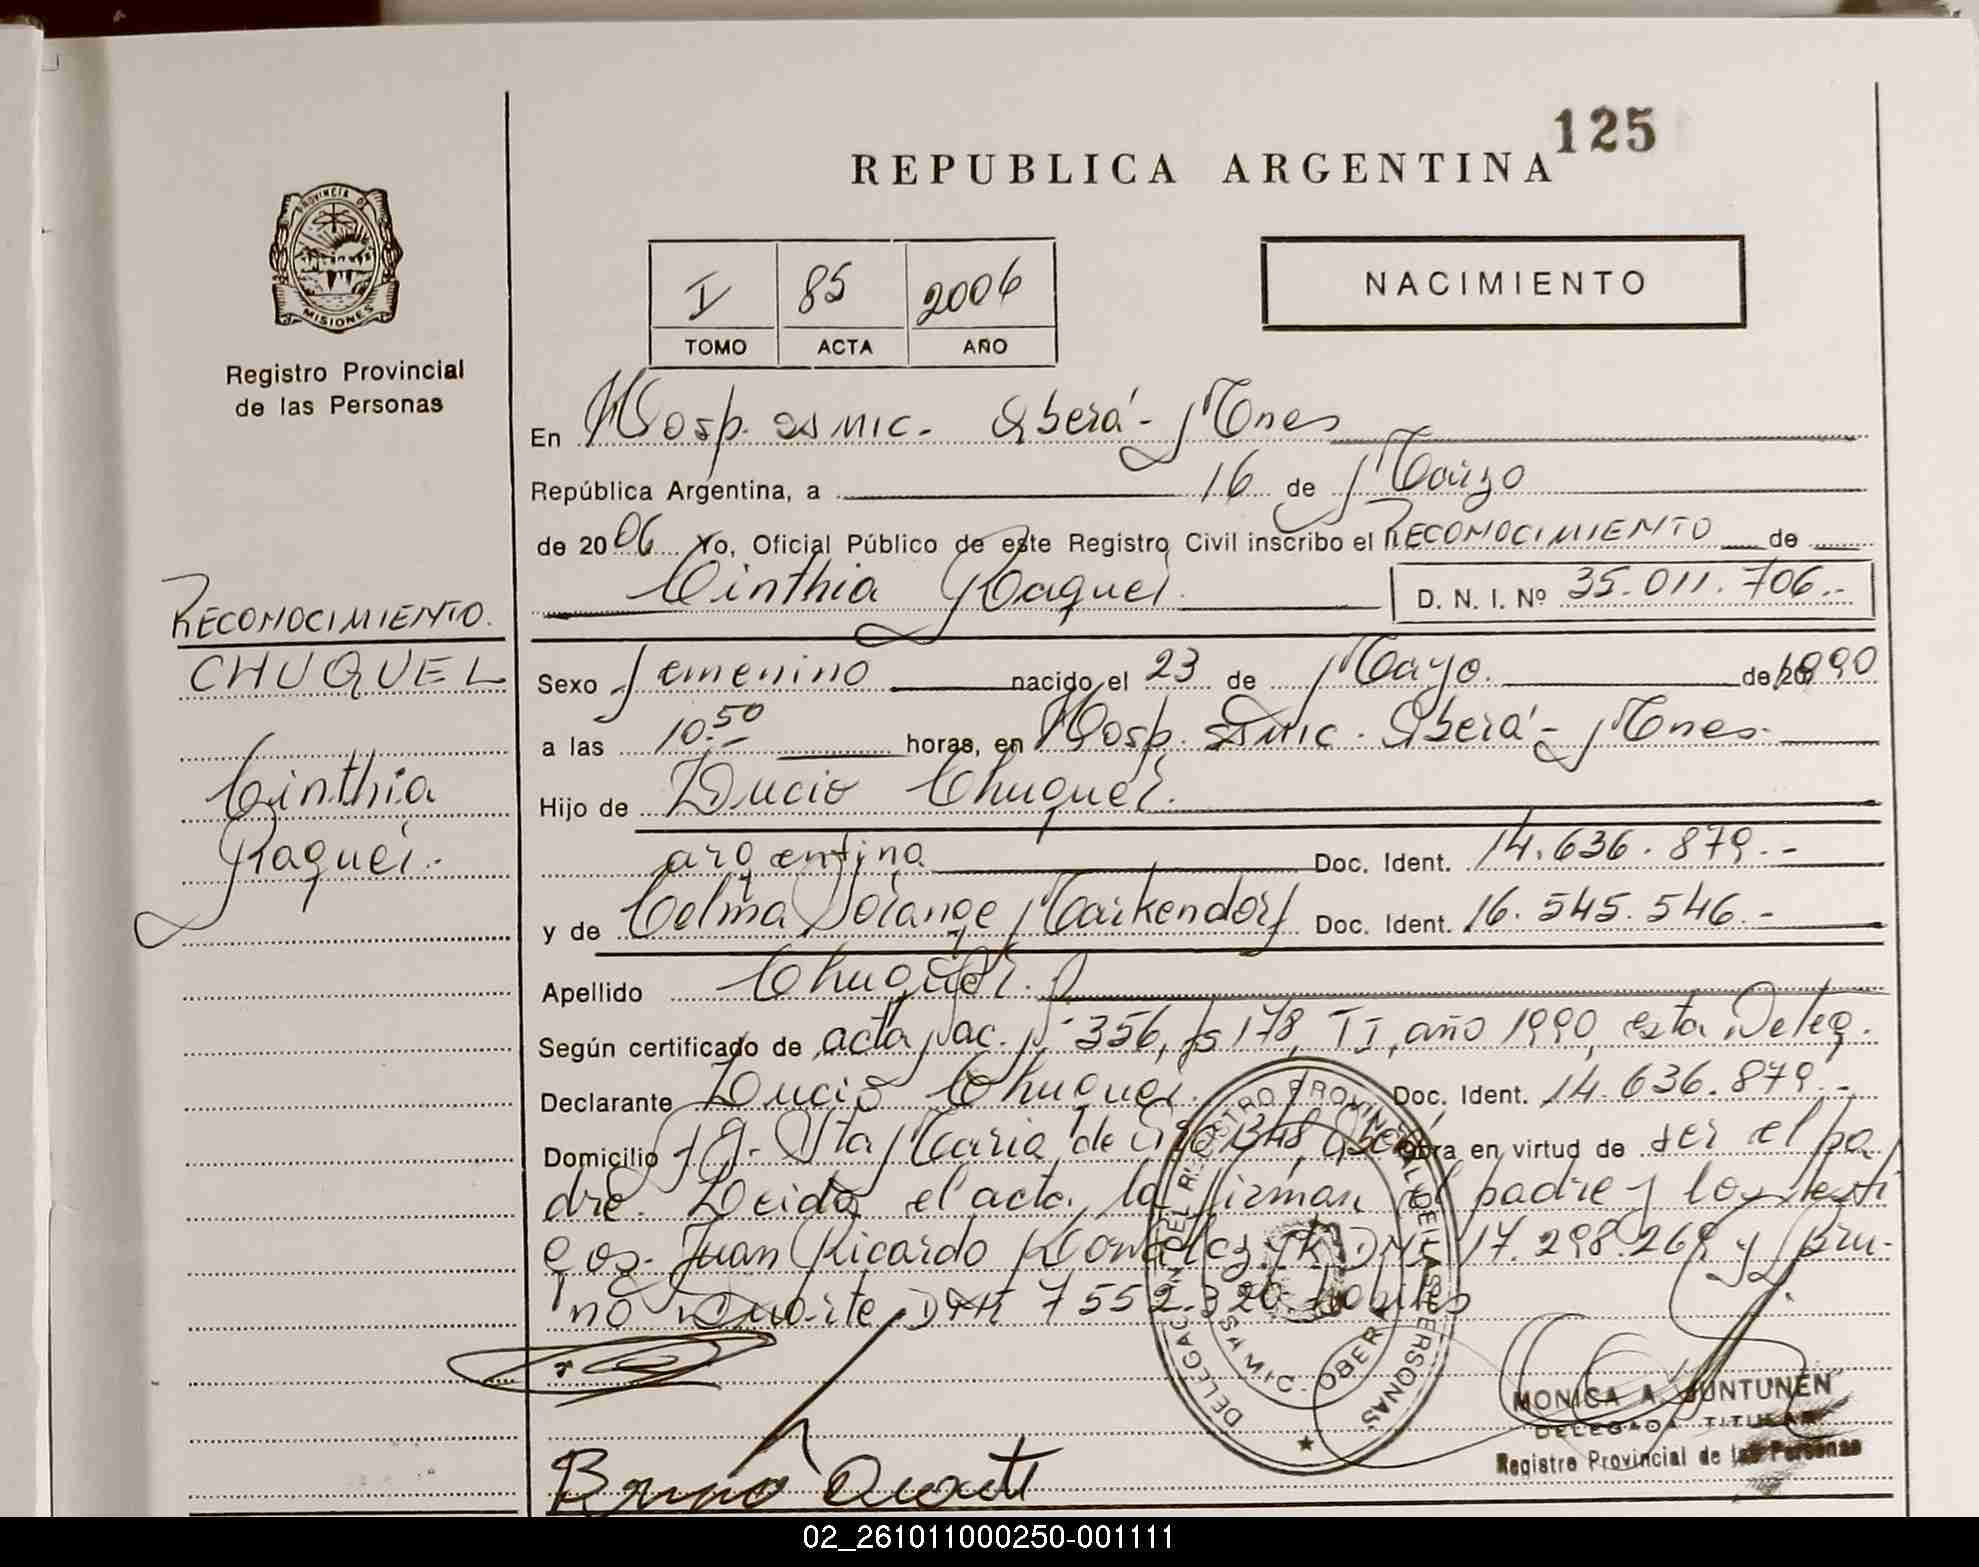 125
REPUBLICA ARGENTINA
PROVINCIA DE
MISIONES
Registro Provincial
de las Personas
NACIMIENTO
I 85 2006
TOMO ACTA AÑO
En Hosp. Samic. Oberá - Mnes
República Argentina, a 16 de Marzo
de 2006 Yo, Oficial Público de este Registro Civil inscribo el RECONOCIMIENTO de
Cinthia Raquel. D. N. I. Nº 35.011.706.-
RECONOCIMIENTO.
CHUQUEL
Cinthia
Raquel.-
Sexo Femenino nacido el 23 de Mayo. de 1990
a las 10.50 horas, en Hosp. Samic. Oberá - Mnes.
Hijo de Lucio Chuquel.
argentina Doc. Ident. 14.636.879.-
y de Celma Solange Markendorf Doc. Ident. 16.545.546.-
Apellido Chuquel.
Según certificado de acta nac. Nº 356, fs 178, T I, año 1990, esta Deleg.
Declarante Lucio Chuquel. Doc. Ident. 14.636.879.-
Domicilio Sta Maria de 348, Oberá obra en virtud de ser el pa
dre. Leida el acta, la firman el padre y los testi
gos. Juan Ricardo DNI 17.298.269 y Bru-
no Duarte DNI 7 552.320.
DELEGACION DEL REGISTRO PROVINCIAL DE LAS PERSONAS
SAMIC - OBERA
Bruno Duarte
MONICA A. JUNTUNEN
DELEGADA TITULAR
Registro Provincial de las Personas
02_261011000250-001111